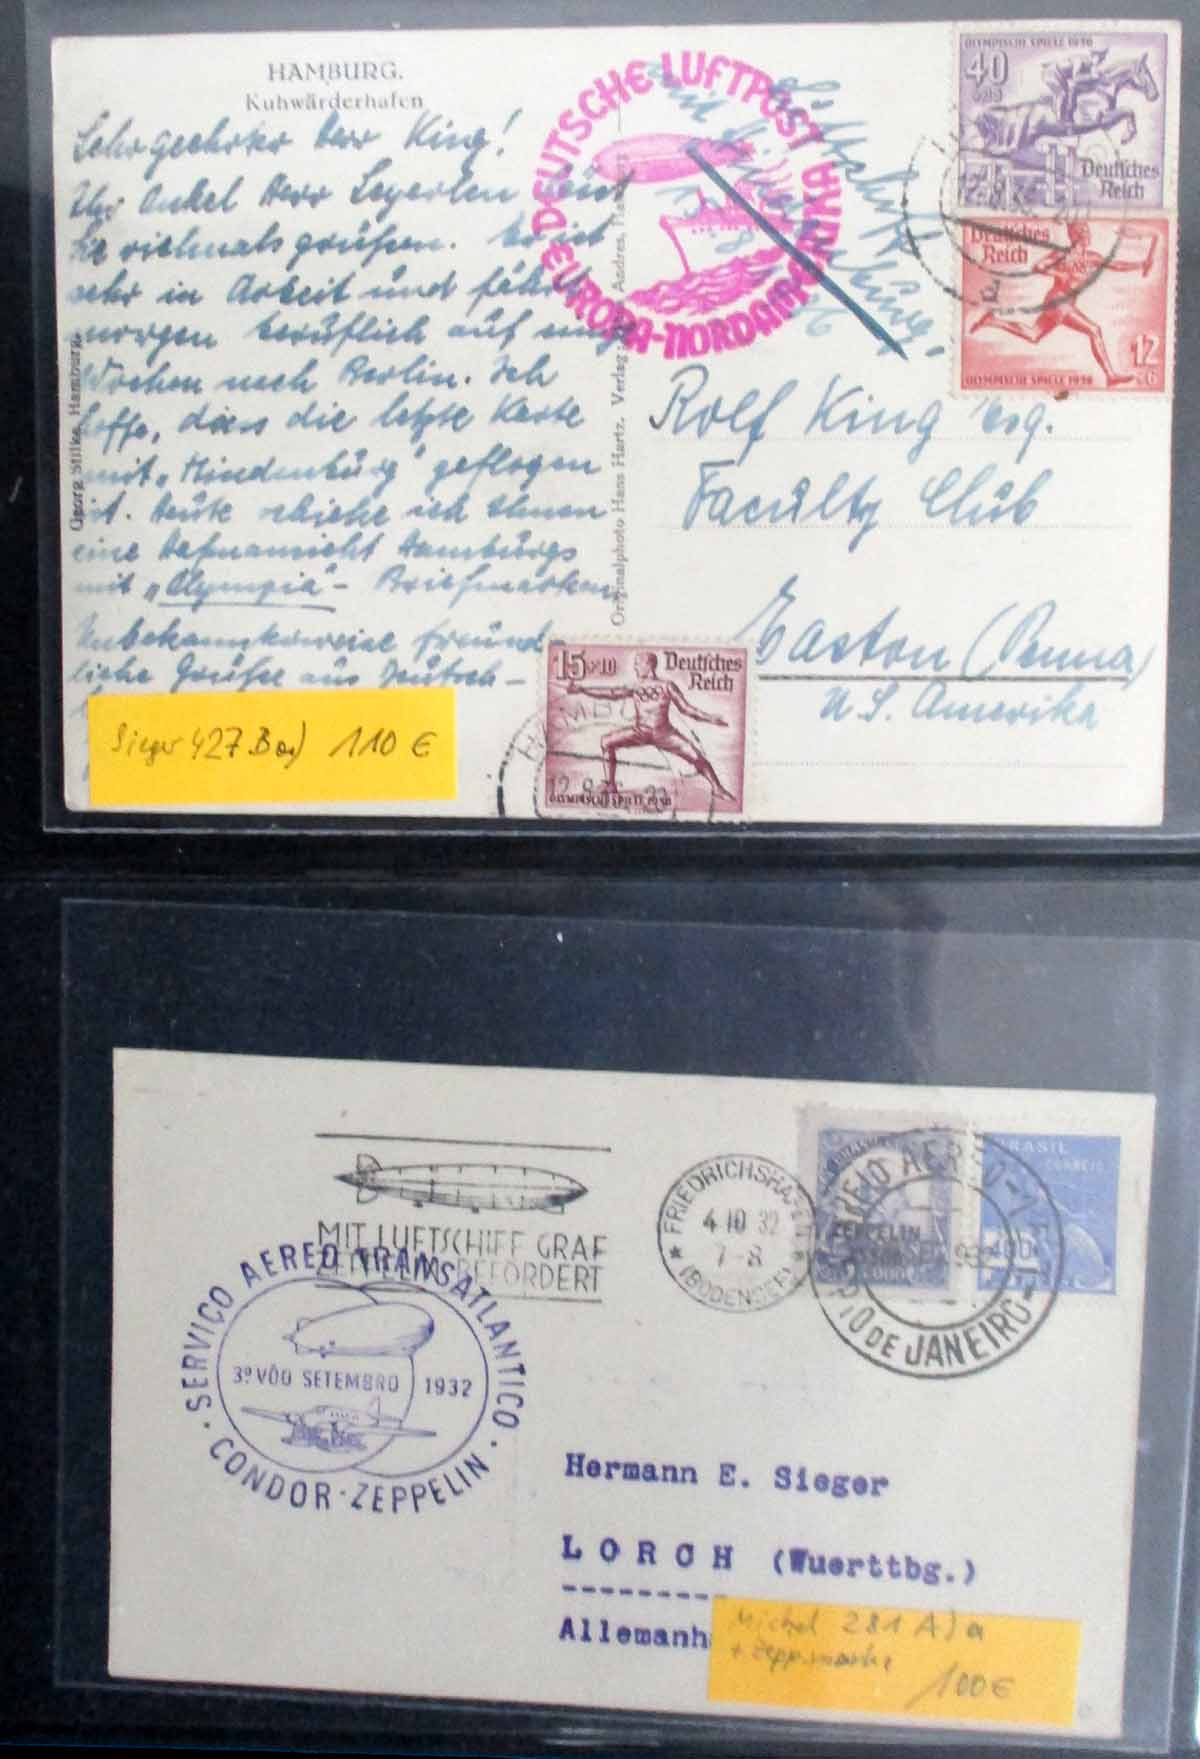 HAMBURG.
Kuhwärderhafen
Sehr geehrter Herr King!
Ihr Onkel Herr Segerlen lässt
Sie vielmals grüßen. Er ist
sehr in Arbeit und fährt
morgen beruflich auf einige
Wochen nach Berlin. Ich
hoffe, dass die letzte Karte
mit „Hindenburg" geflogen
ist. Heute schicke ich Ihnen
eine Hafenansicht Hamburgs
mit „Olympia"- Briefmarken
Unbekannterweise freund
liche Grüße aus Deutsch-
Georg Stilke, Hamburg.
Originalphoto Hans Hartz. Verlag: Andres, Hamburg
DEUTSCHE LUFTPOST
EUROPA-NORDAMERIKA
Luftschiff
Hindenburg.
OLYMPISCHE SPIELE 1936
40
Deutsches
Reich
Deutsches
Reich
12
+6
OLYMPISCHE SPIELE 1936
Rolf King Esq.
Faculty Club
Easton (Penna)
U. S. Amerika
15+10 Deutsches
Reich
OLYMPISCHE SPIELE 1936
HAMBU
12.8.36. 22
Sieger 427 B a) 110 €
MIT LUFTSCHIFF GRAF
ZEPPELIN BEFÖRDERT
FRIEDRICHSHAFEN
4.10.32
7-8
(BODENSEE)
ZEPPELIN
BRASIL
CORREIO
CORREIO AEREO
RIO DE JANEIRO
SERVIÇO AEREO TRANSATLANTICO
3º VÔO SETEMBRO 1932
CONDOR-ZEPPELIN
Hermann E. Sieger
LORCH (Wuerttbg.)
Allemanh
Michel 281 A) a
+ Zepp.marke
100 €